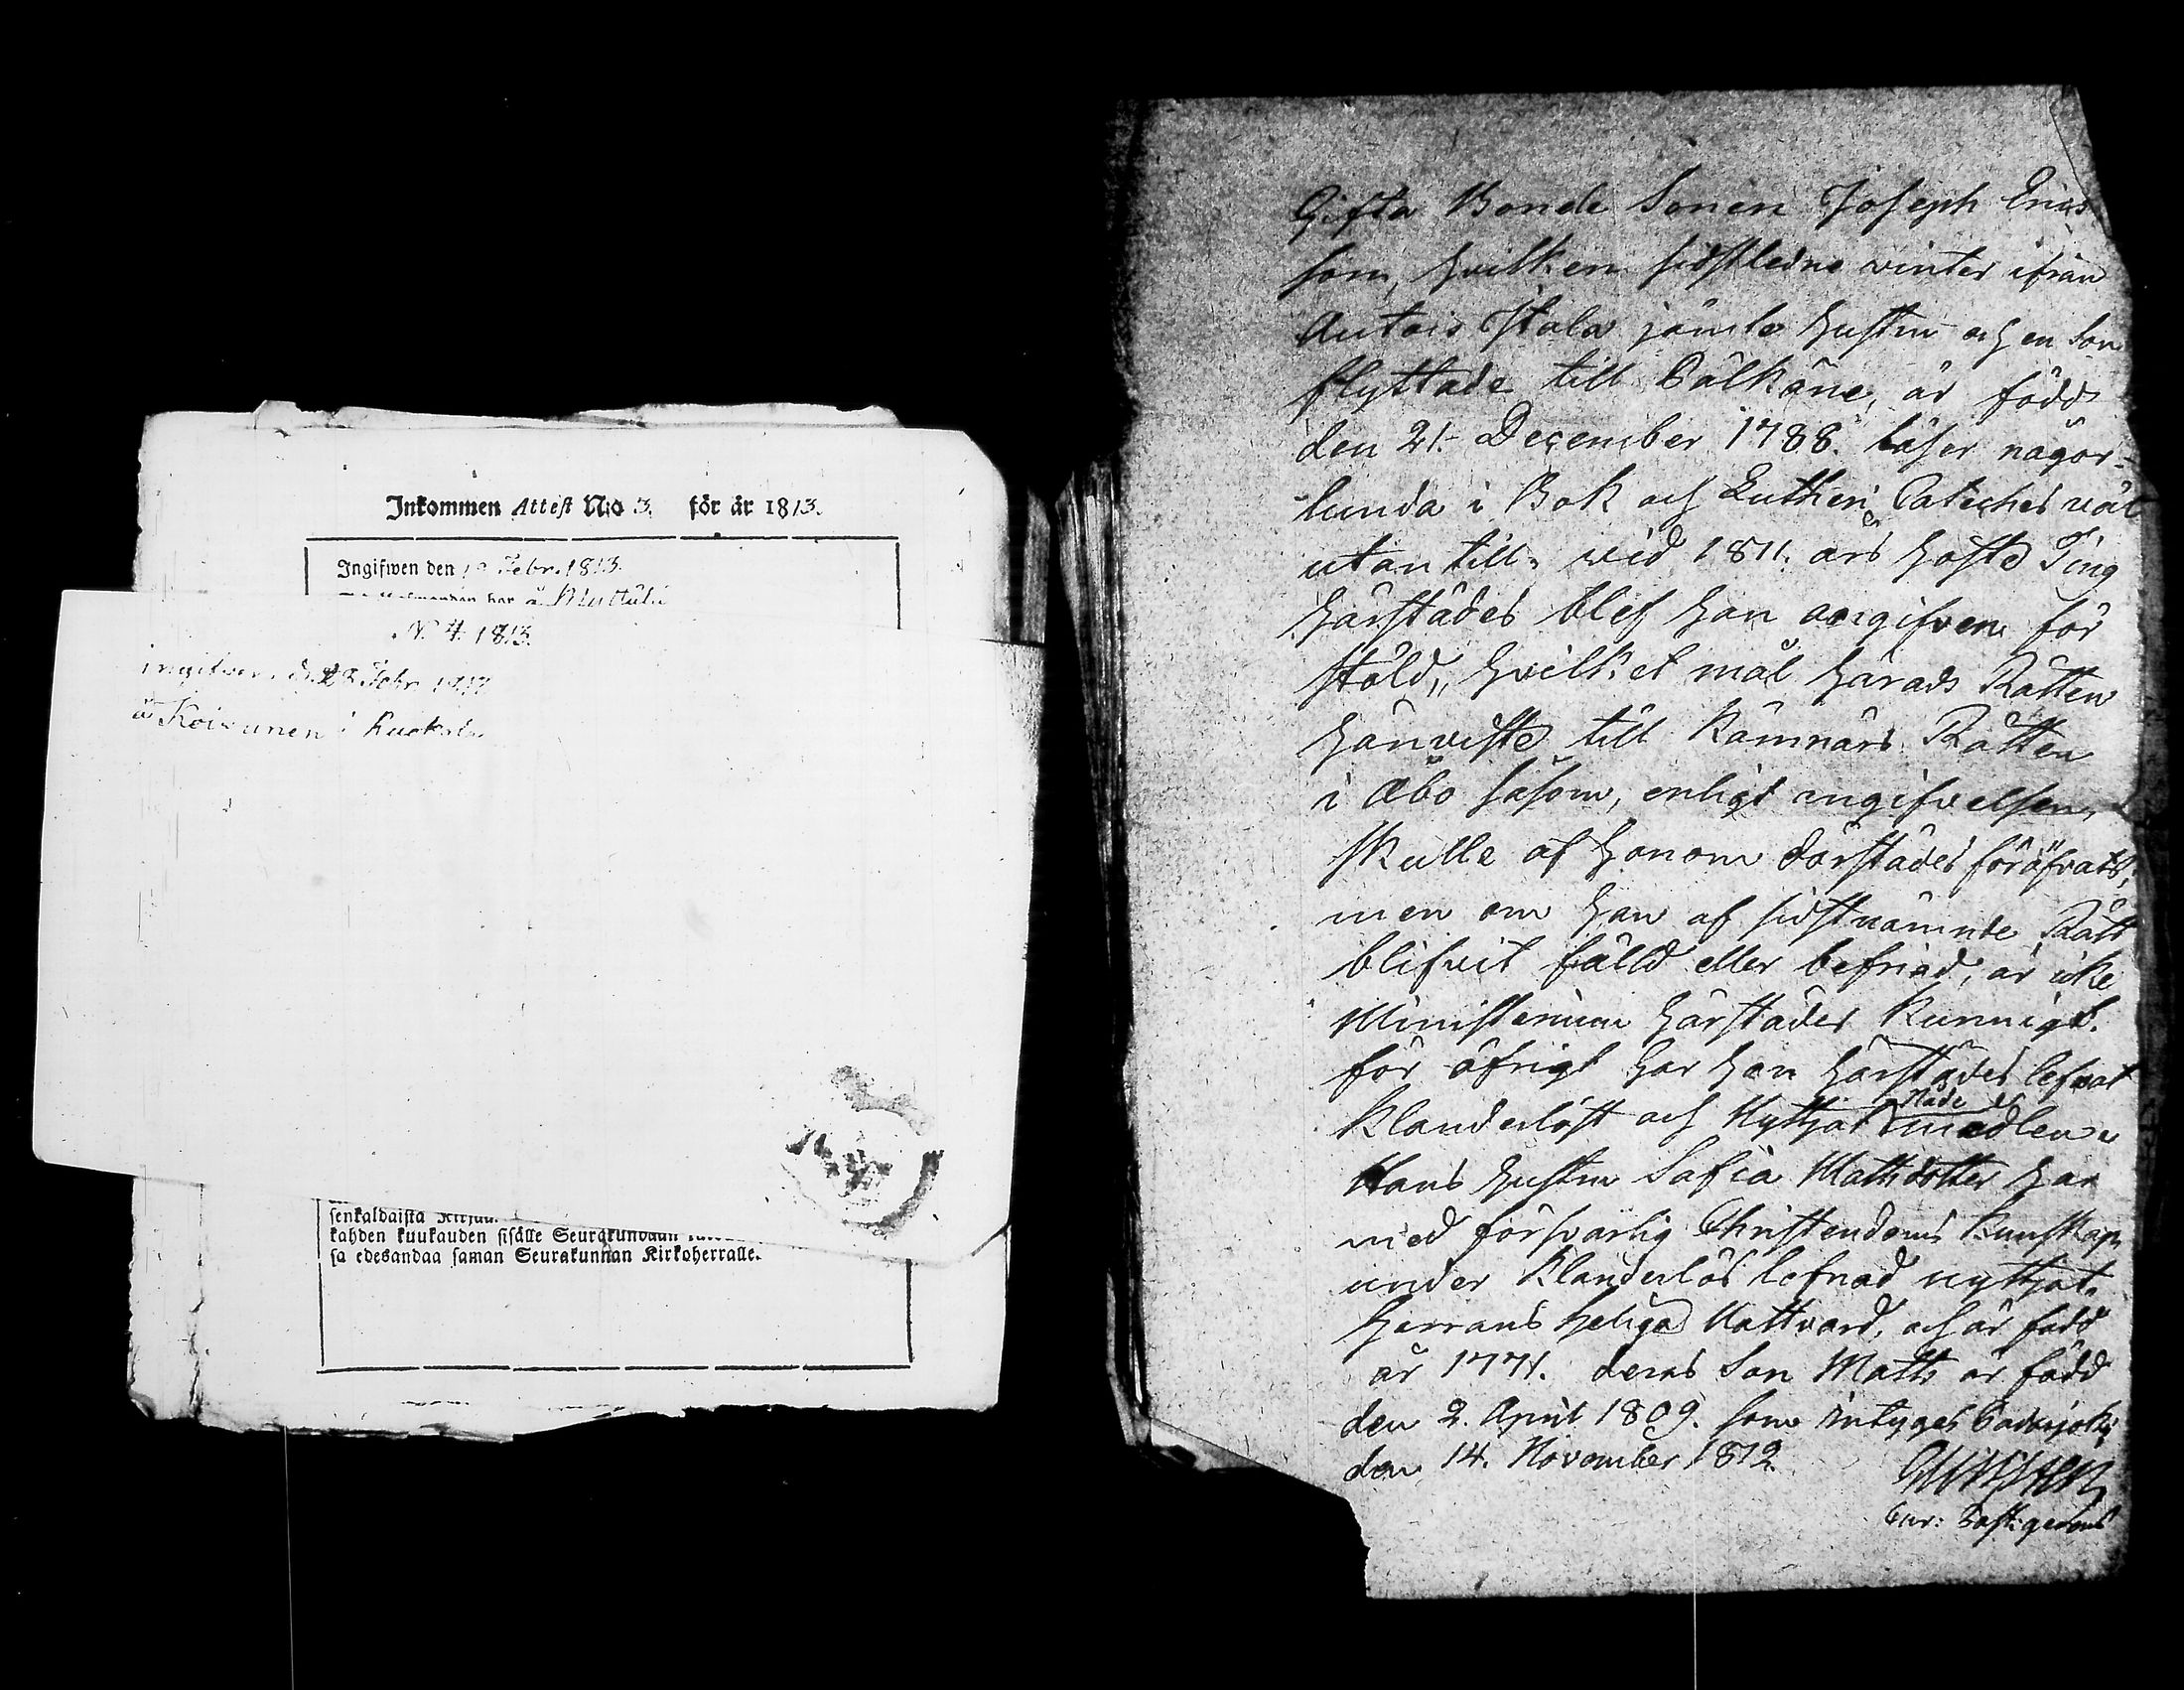 Inkommen Attest N:o 3. för år 1813.
Ingifwen den 12 Febr. 1813.
N:o 4. 1813.
ingifven d. 28 Febr. 1813
å Koivunen i
senkaldaista
kahden kuukauden sisälle Seurakundaan
sa edesandaa saman Seurakunnan Kirkoherralle.
Gifta Bonde Sonen Joseph Erics
son, hvilken sidstledne vinter ifrån
Autois Itala jämte hustru och en Son
flyttade till Pälkäne, är född
den 21. December 1788. läser någor-
lunda i Bok och Lutheri Cateches väl
utantill. vid 1811. års höste Ting
härstädes blef han angifven för
stöld, hvilket mål Härads Rätten
hänviste till Kämnärs Rätten
i Åbo såsom, enligt angifvelsen,
skulle af honom därstädes föröfvats;
men om han af sidstnämnde Rätt
blifvit fälld eller befriad, är icke
Ministerium härstädes kunnigt.
för öfrigt har han härstädes lefvat
klanderlöst och Nyttjat Nåde medlen.
Hans hustru Safia Mattsdotter har
med försvarlig Christendoms kunskap
under klanderlös lefnad nyttjat
Herrans heliga Nattvard, och är född
år 1771. deras Son Matts är född
den 2. April 1809. som intygas Padasjoki
den 14. November 1812.